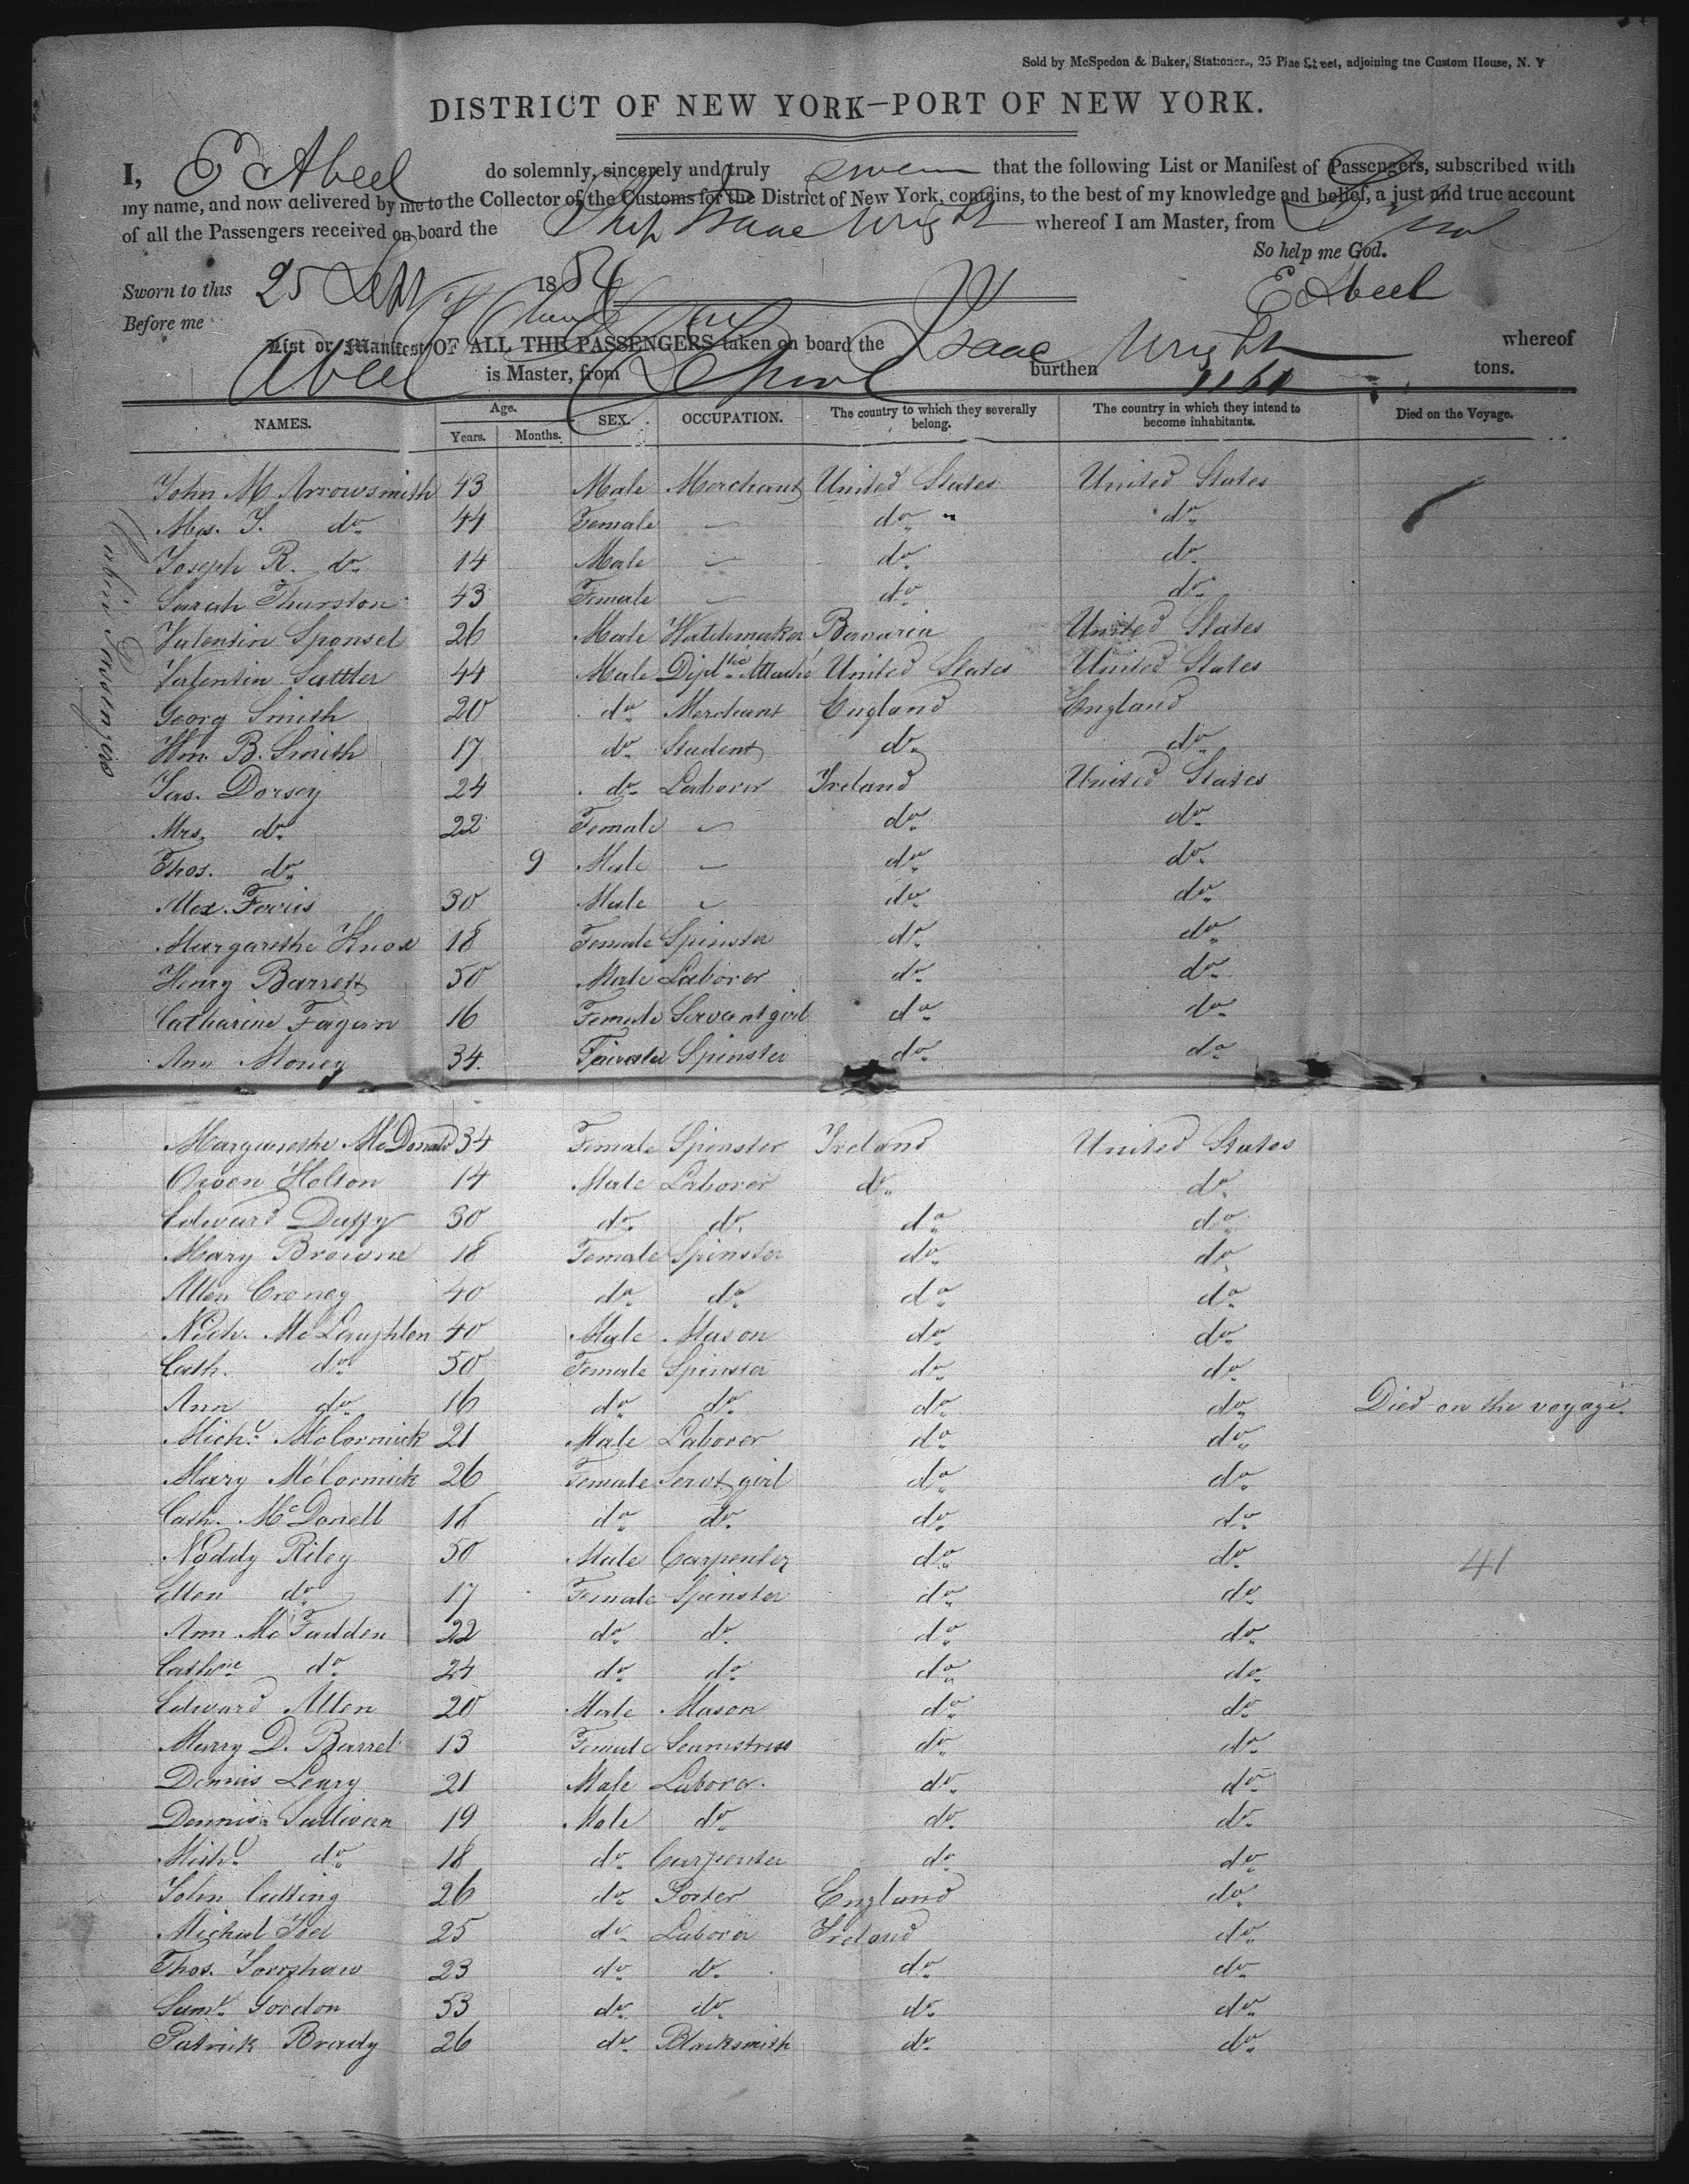 Sold by McSpedon & Baker, Stationers, 25 Pine Street, adjoining the Custom House, N. Y
DISTRICT OF NEW YORK—PORT OF NEW YORK.
I, E Abeel do solemnly, sincerely and truly swear that the following List or Manifest of Passengers, subscribed with
my name, and now delivered by me to the Collector of the Customs for the District of New York, contains, to the best of my knowledge and belief, a just and true account
of all the Passengers received on board the Ship Isaac Wright whereof I am Master, from L'pool
So help me God.
Sworn to this 25 Sept 1854 E Abeel
Before me
List or Manifest OF ALL THE PASSENGERS taken on board the Isaac Wright whereof
Abeel is Master, from L'pool burthen 1161 tons.
NAMES. Age. Years. Months. SEX. OCCUPATION. The country to which they severally belong. The country in which they intend to become inhabitants. Died on the Voyage.
Cabin Passengers
John M Arrowsmith 43 Male Merchant United States United States
Mrs. J. do 44 Female — do " do
Joseph R. do 14 Male — do do
Sarah Thurston 43 Female — do do
Valentin Sponsel 26 Male Watchmaker Bavaria United States
Valentin Sattler 44 Male Diplthic Attaché United States United States
Georg Smith 20 do Merchant England England
Wm. B. Smith 17 do Student do do
Jas. Dorsey 24 do Laborer Ireland United States
Mrs. do 22 Female — do do
Thos. do 9 Male — do do
Alex. Ferris 30 Male — do do
Margarethe Knox 18 Female Spinster do do
Henry Barrett 50 Male Laborer do do
Catharine Fagan 16 Female Servant girl do do
Ann Money 34. Female Spinster do do
Margarethe McDonald 34 Female Spinster Ireland United States
Owen Holton 14 Male Laborer do do
Edward Duffy 30 do do do do
Mary Browne 18 Female Spinster do do
Ellen Croney 40 do do do do
Nich. McLaughlen 40 Male Mason do do
Cath. do 50 Female Spinster do do
Ann do 16 do do do do Died on the voyage.
Michl McCormick 21 Male Laborer do do
Mary McCormick 26 Female Servt girl do do
Cath. McDonell 18 do do do do
Noddy Riley 50 Male Carpenter do do 41
Ellen do 17 Female Spinster do do
Ann McFadden 22 do do do do
Cathne do 24 do do do do
Edward Allen 20 Male Mason do do
Marry D. Barret 13 Female Seamstress do do
Dennis Leary 21 Male Laborer. do do
Dennis Sullivan 19 Male do do do
Michl do 18 do Carpenter do do
John Cutting 26 do Porter England do
Michael 25 do Laborer Ireland do
Thos. 23 do do do do
Saml Gordon 53 do do do do
Patrick Brady 26 do Blacksmith do do